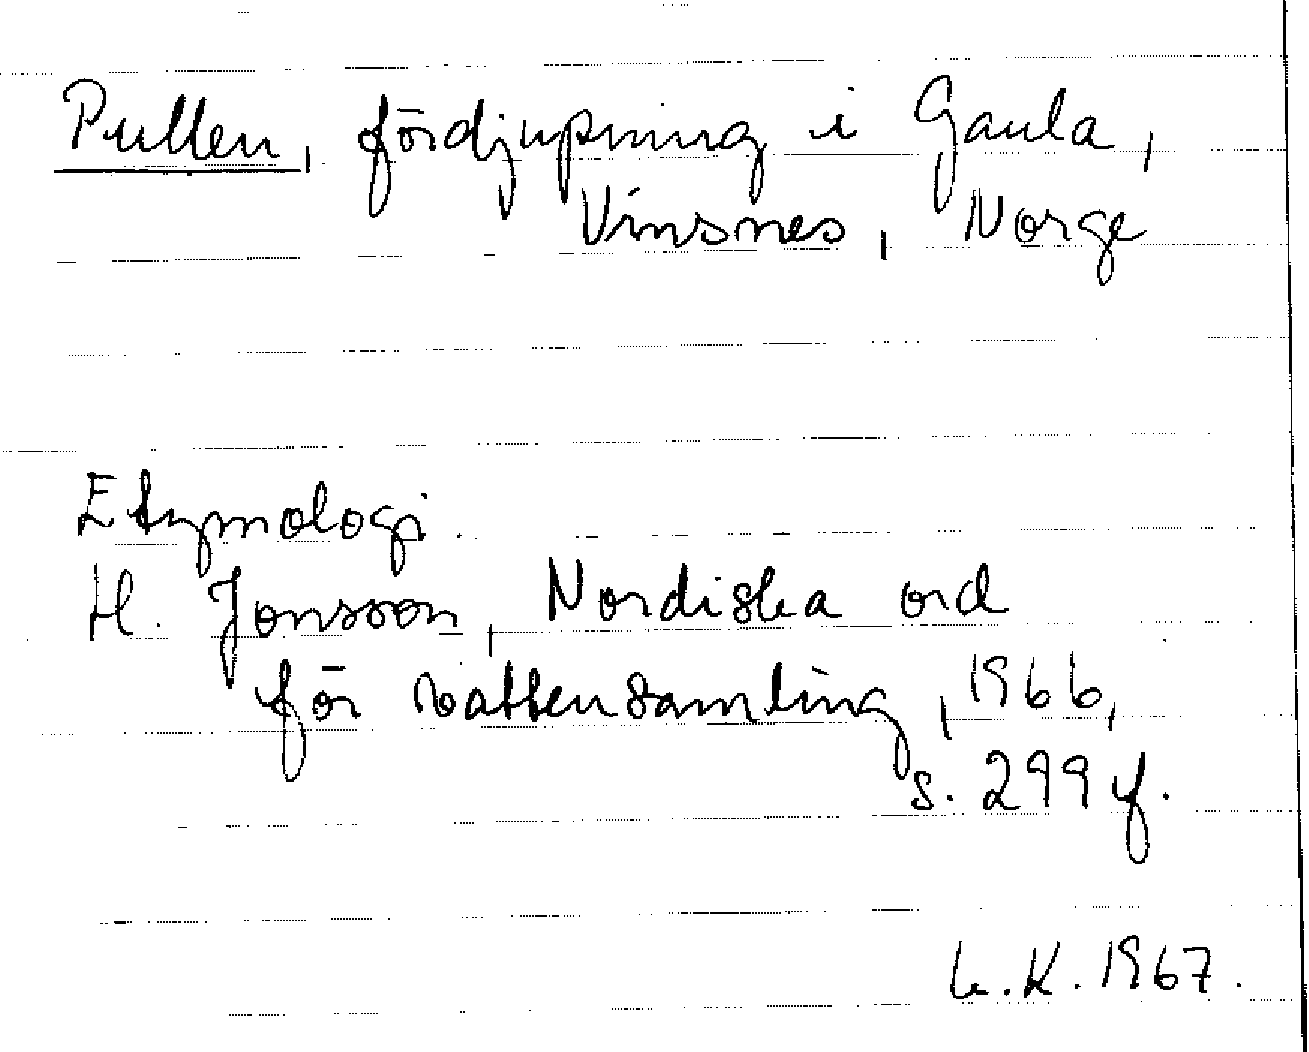 Pullen, fördjupning i Gaula,
Vinsnes, Norge
Etymologi.
H. Jonsson, Nordiska ord
för vattensamling, 1966,
s. 299 f.
L.K. 1967.